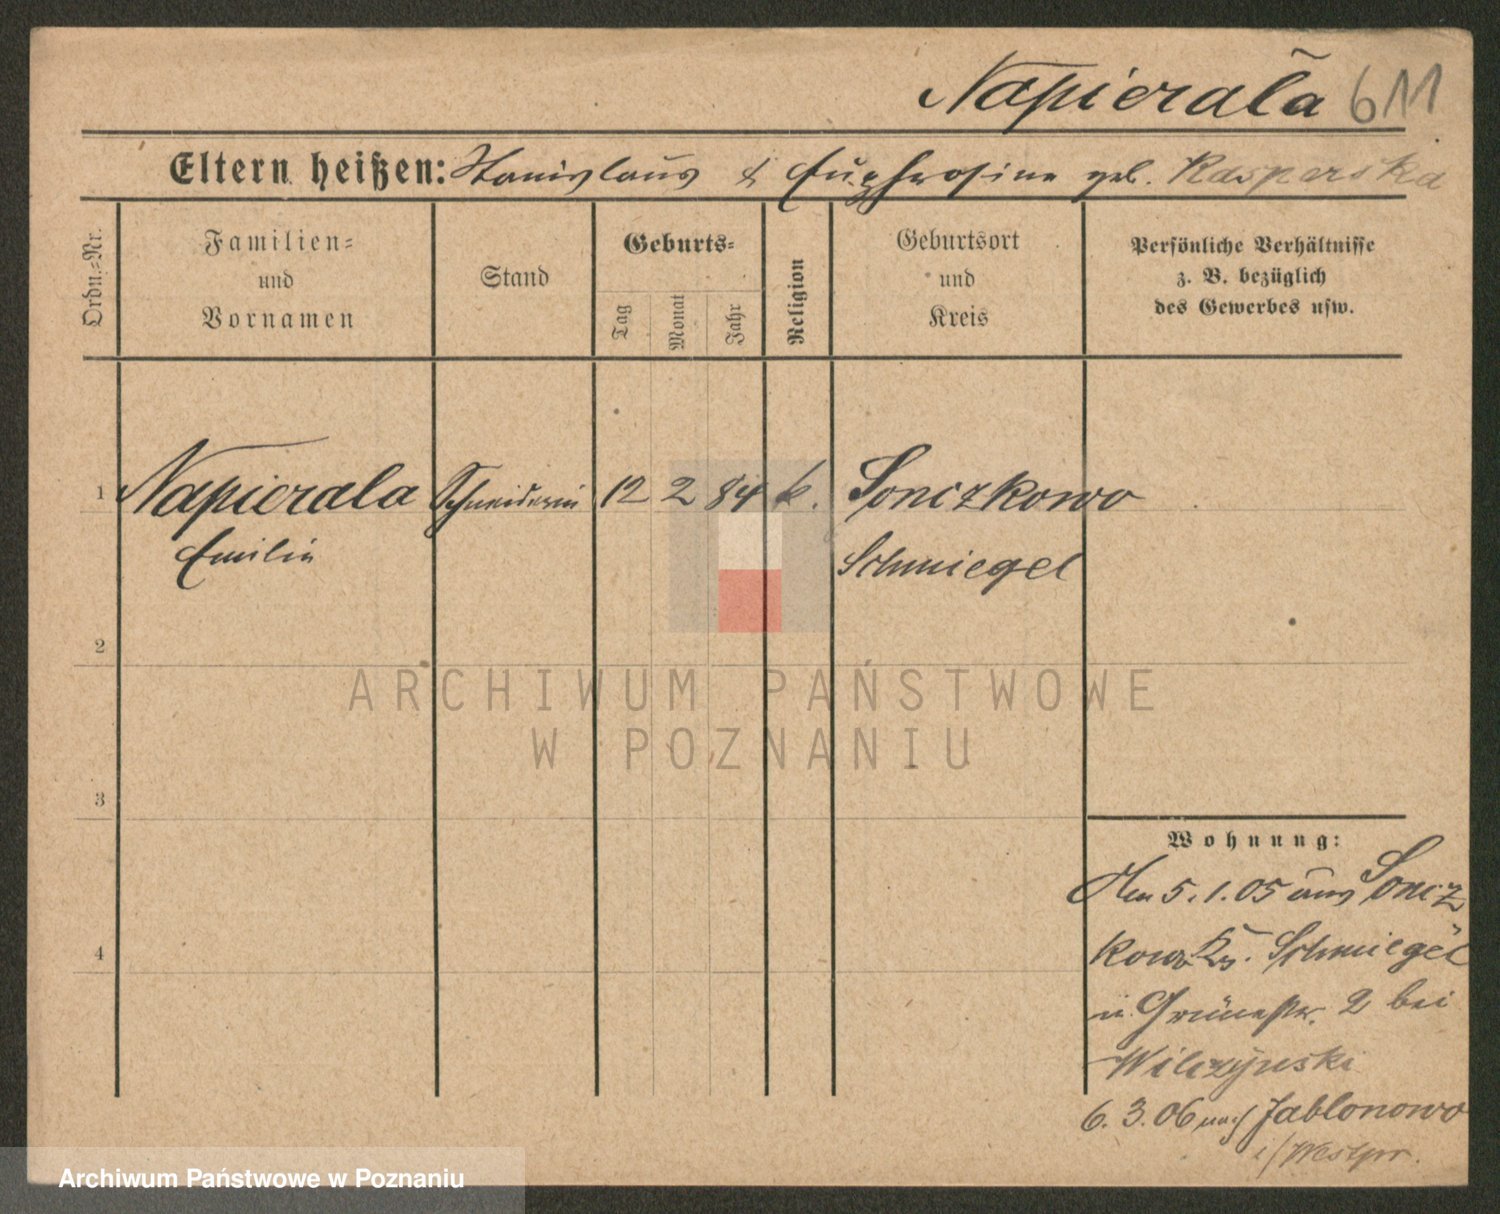 Napierala 611
Eltern heißen: Stanislaus & Euphrosine geb. Kasperska
Ordn.-Nr.
Familien-
und
Vornamen
Stand
Geburts-
Tag
Monat
Jahr
Religion
Geburtsort
und
Kreis
Persönliche Verhältnisse
z. B. bezüglich
des Gewerbes usw.
1 Napierala Schneiderin 12 2 84 k. Sonczkowo
Emilie Schmiegel
2
ARCHIWUM PAŃSTWOWE
W POZNANIU
3
Wohnung:
Am 5.1.05 aus Soncz
kowo Krs. Schmiegel
n. Grünestr. 2 bei
4
Wilczynski
6.3.06 nach Jablonowo
i/Westpr.
Archiwum Państwowe w Poznaniu